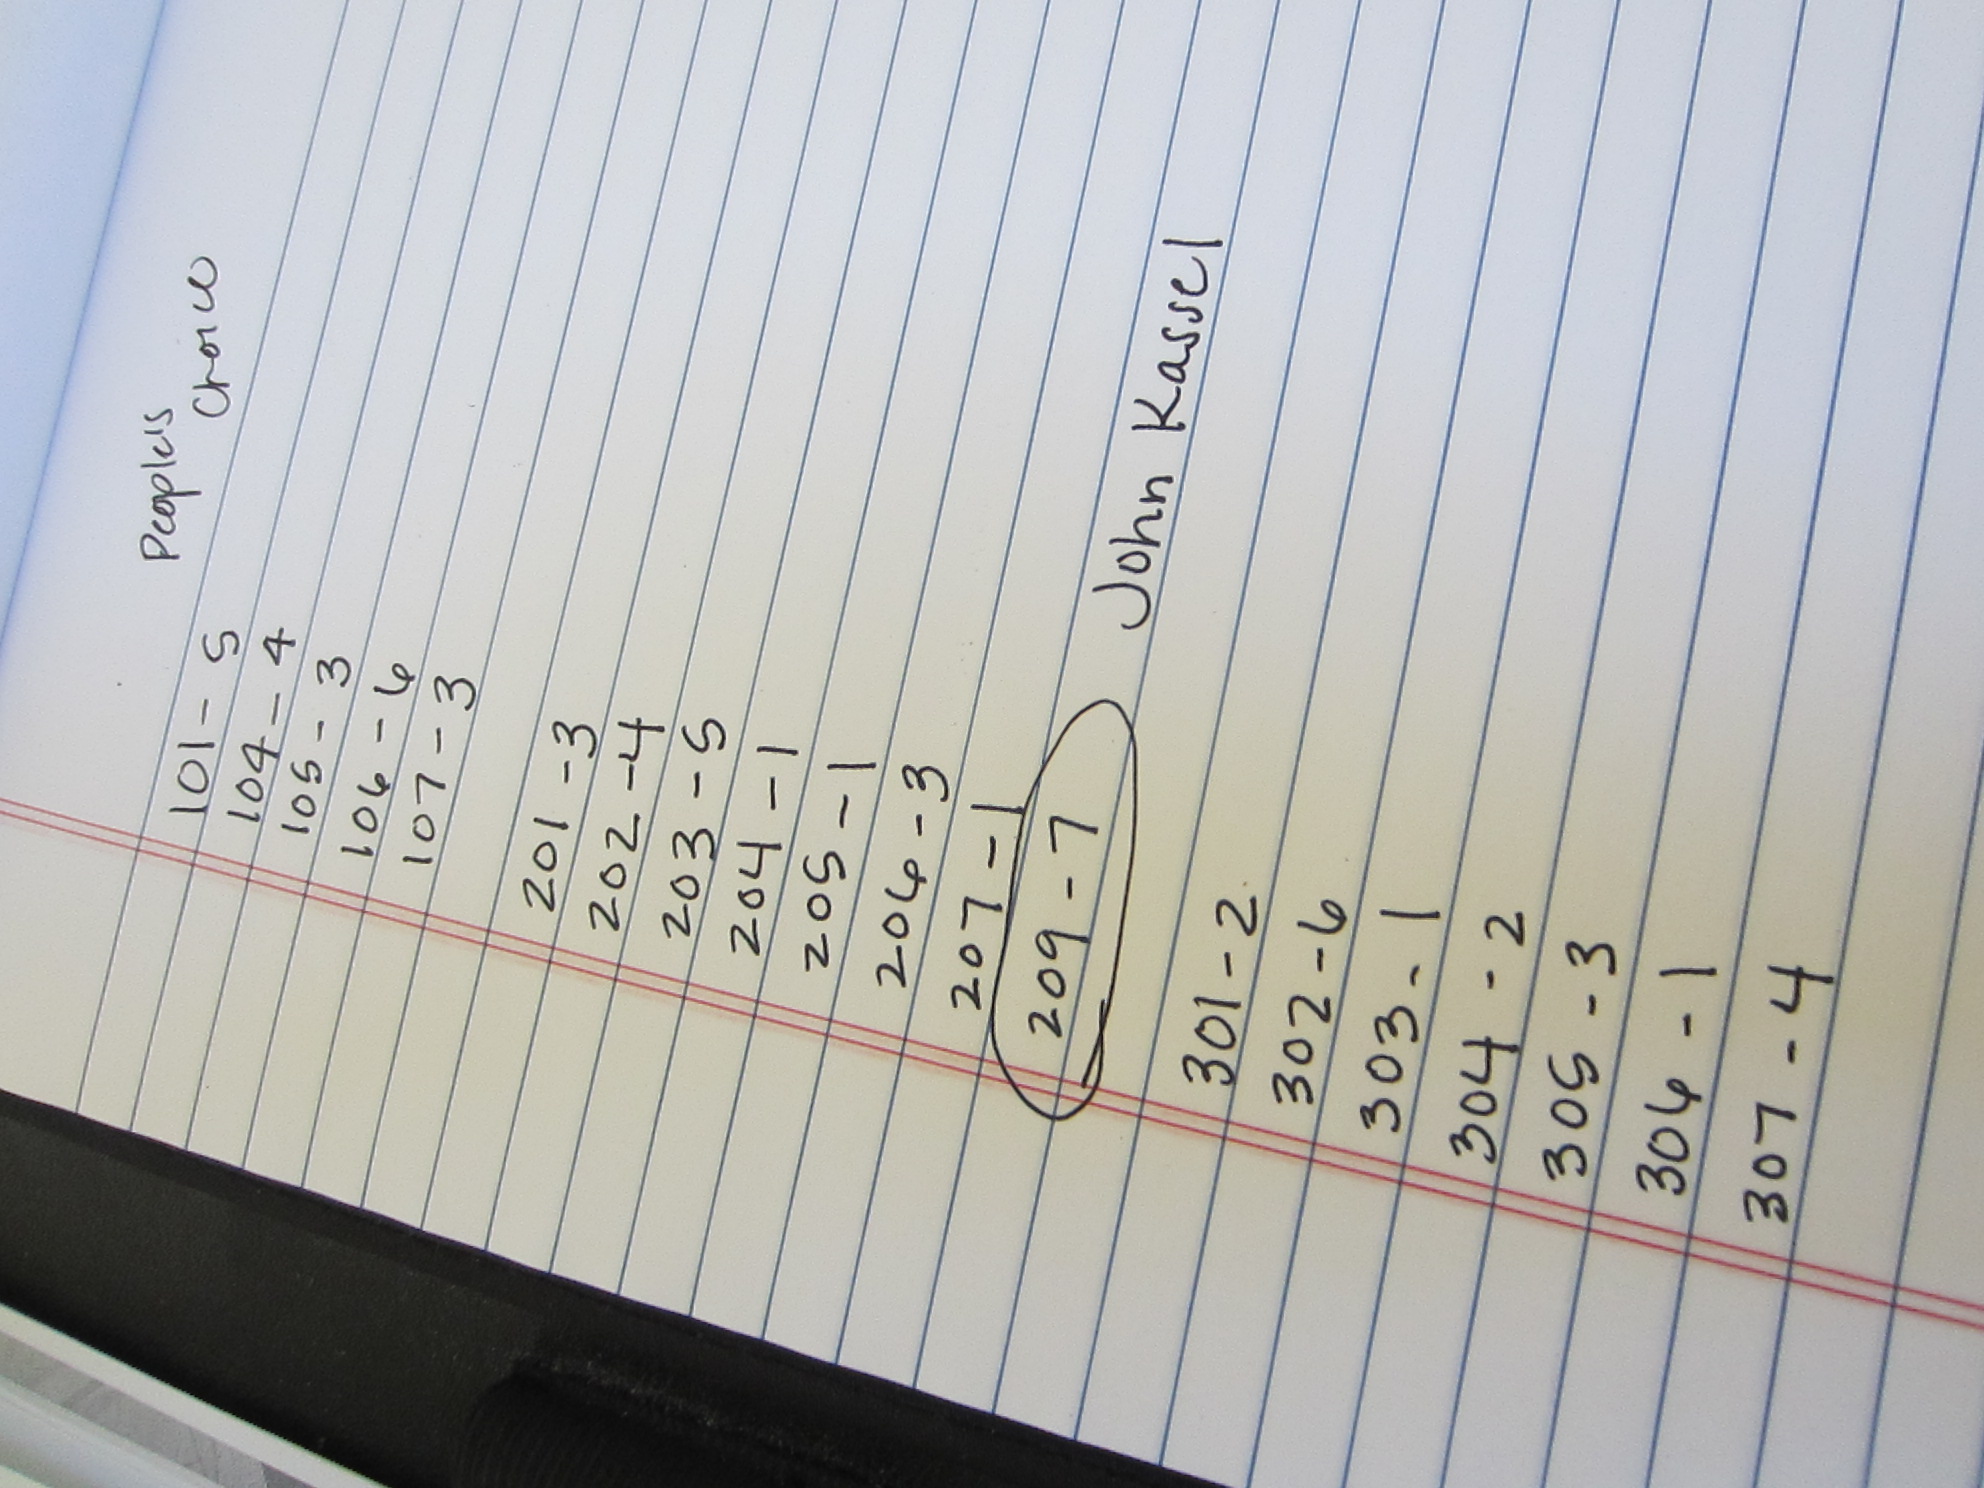 Peoples
Choice
101 - 5
104 - 4
105 - 3
106 - 6
107 - 3
201 - 3
202 - 4
203 - 5
204 - 1
205 - 1
206 - 3
207 - 1
209 - 7 John Kassel
301 - 2
302 - 6
303 - 1
304 - 2
305 - 3
306 - 1
307 - 4